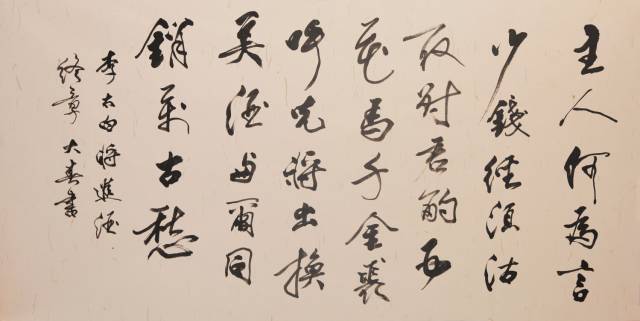 主人何為言
少錢徑須沽
取對君酌五
花馬千金裘
呼兒將出換
美酒與爾同
銷萬古愁
李太白將進酒
終章 大春書